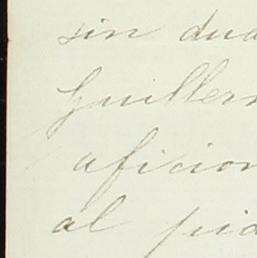 sin dud
Guillerm
aficion
al pia